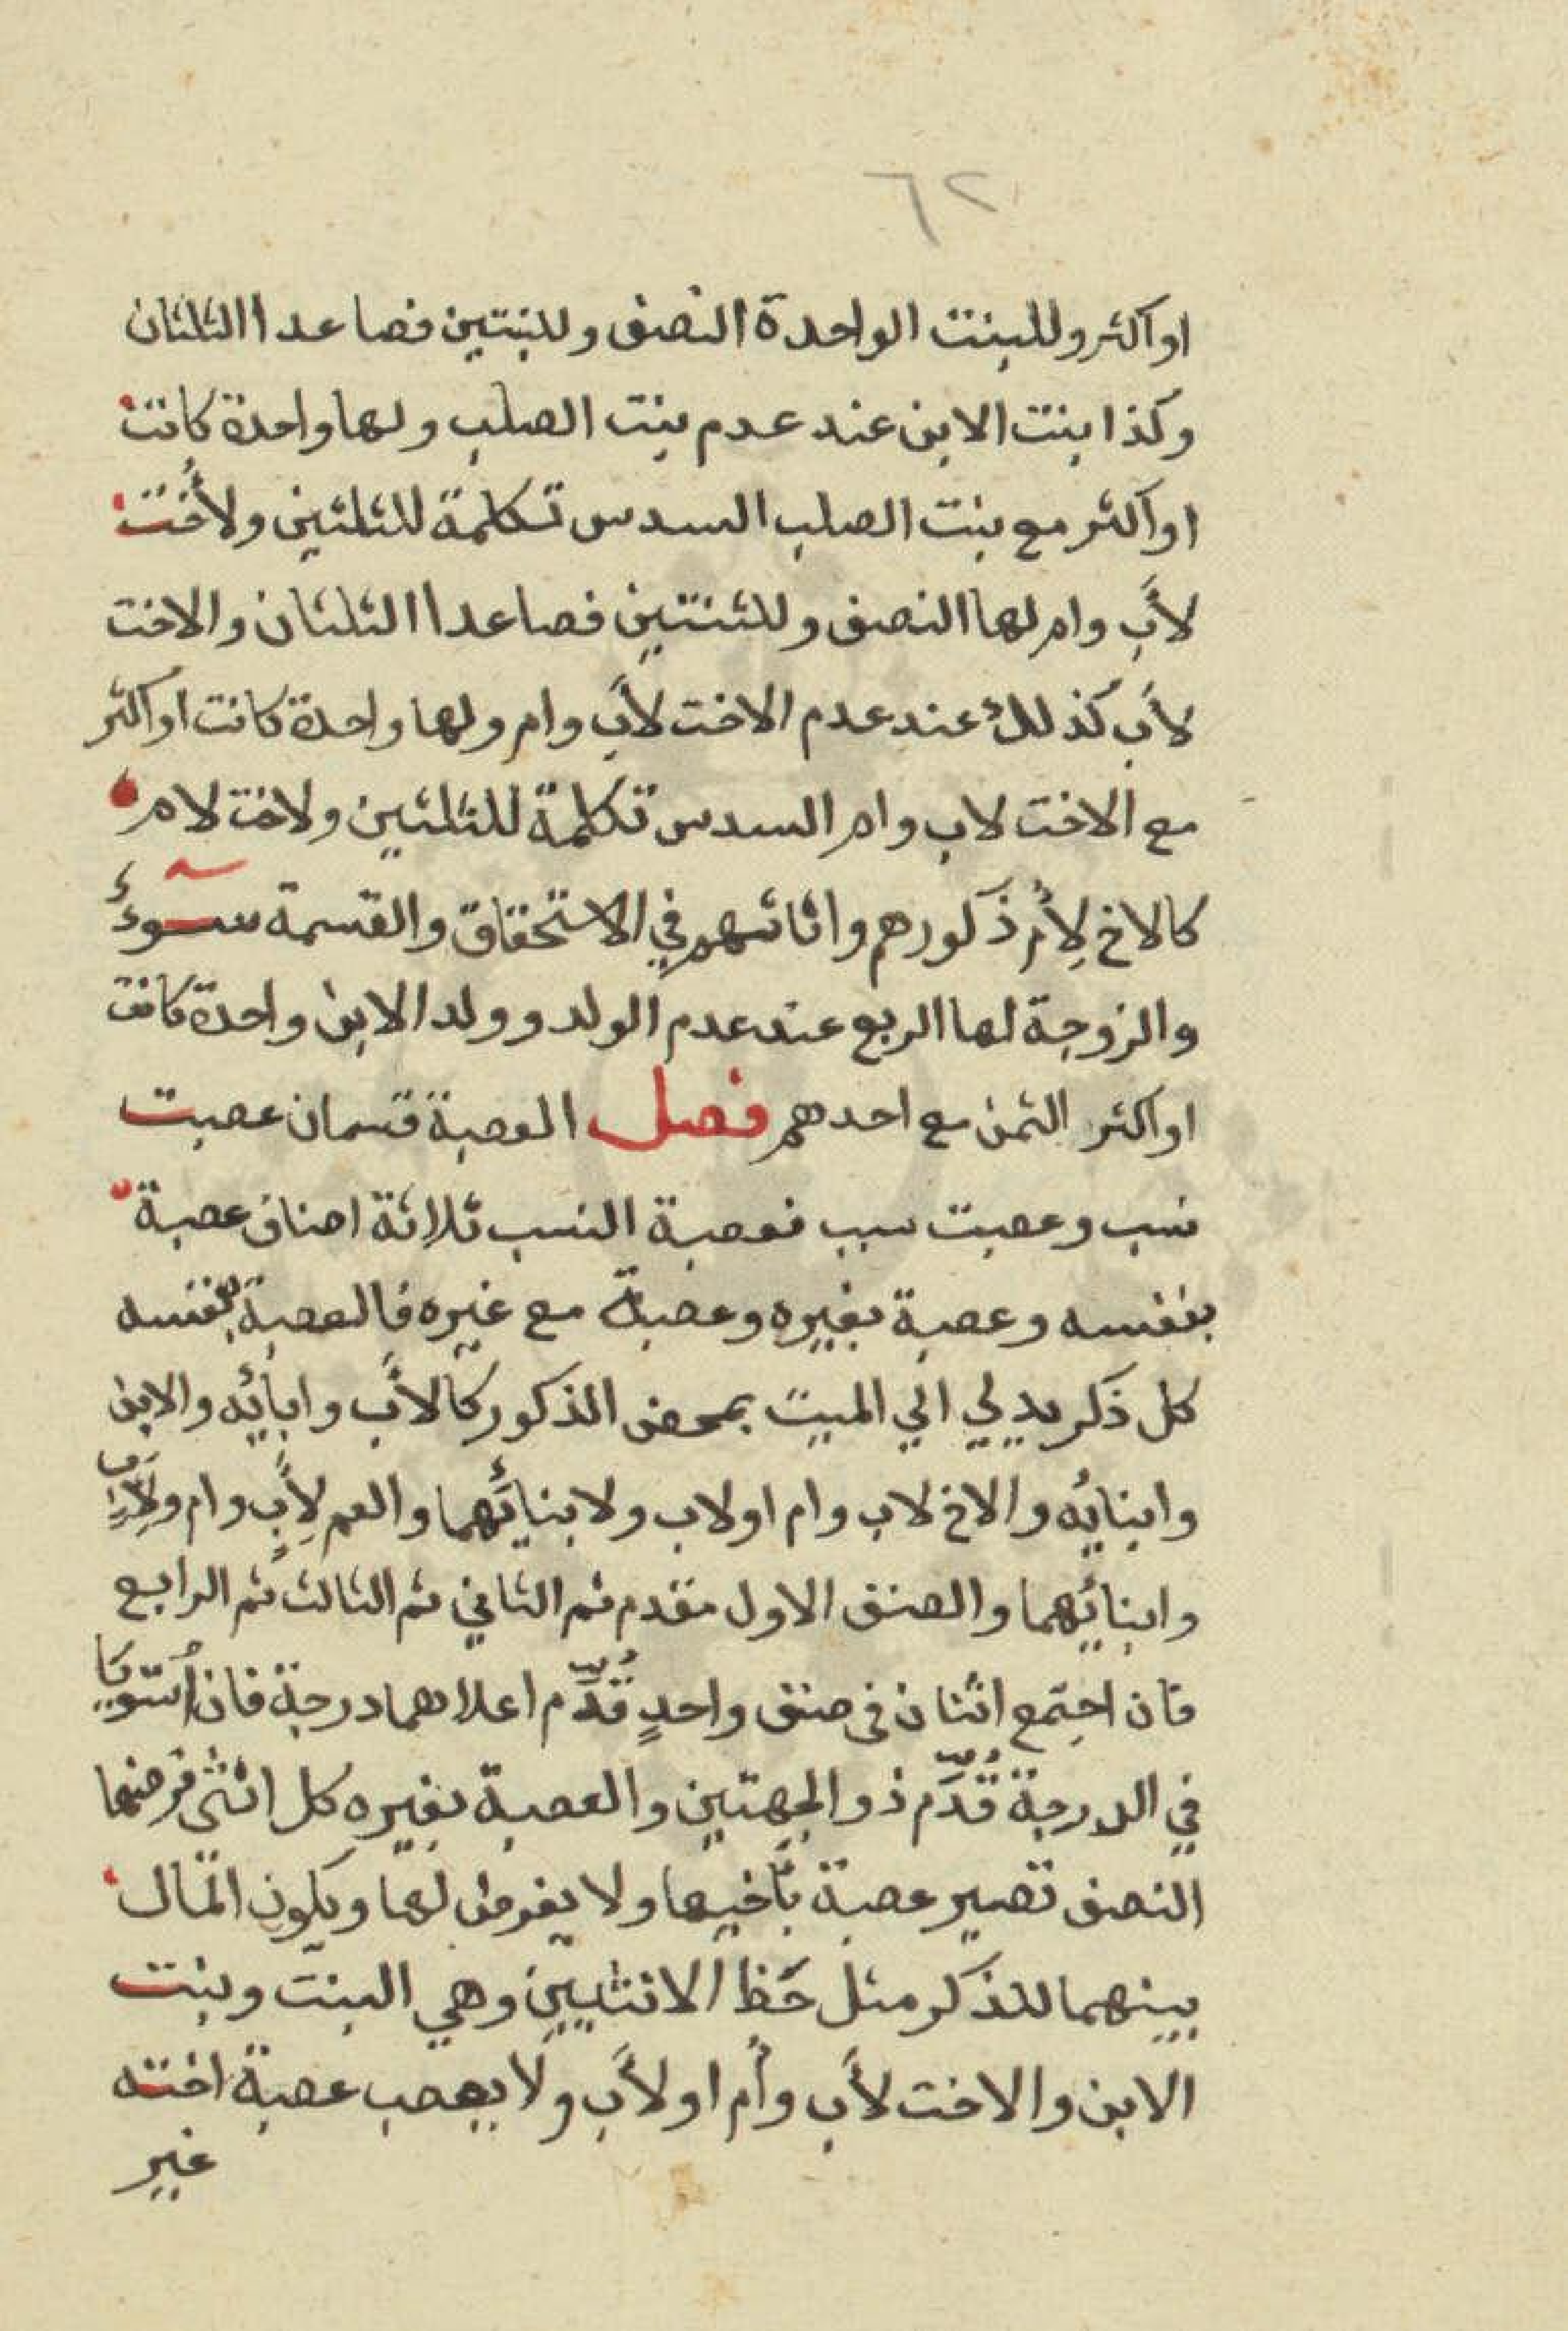 ٦٢
او اكثر وللبنت الواحدة النصف وللبنتين فصاعدا الثلثان
وكذا بنت الابن عند عدم بنت الصلب ولها واحدة كانت
او اكثر مع بنت الصلب السدس تكلمة للثلثين ولأُخت
لأَبٍ وام لها النصف وللثنتين فصاعدا الثلثان والاخت
لأَبٍ كذلك عند عدم الاخت لأَبٍ وام ولها واحدة كانت او اكثر
مع الاخت لاب وام السدس تكلمة للثلثين ولاخت لام
كالاخ لِأُم ذَكورهم واناثهم في الاستحقاق والقسمة سوٓءٌ
والزوجة لها الربع عند عدم الولد وولد الابن واحدة كانت
او اكثر الثمن مع احدهم فصل العصبة قسمان عصبت
نسب وعصبت سبب فعصبة النسب ثلاثة اصناف عصبة
بنفسه وعصبة بغيره وعصبة مع غيره فالعصبة بنفسه
كل ذكر يدلي الي الميت بمحض الذكور كالأَبِ وابائه والابن
وابنائه والاخ لاب وام او لاب ولابنائهما والعم لِأَبٍ وام ولِأَبٍ
وابنائهما والصنف الاول مقدم ثم الثاني ثم الثالث ثم الرابع
فان اجتمع اثنان في صنف واحدٍ قُدِّم اعلاهما درجة فان اُستويا
في الدرجة قُدِّم ذو الجهتين والعصبة بغيره كل انثى فرضها
النصف تصير عصبة بأَخيها ولا يفرض لها ويكون المال
بينهما للذكر مثل حَظ الانثيين وهي البنت وبنت
الابن والاخت لأَبٍ وأُم او لأَبٍ ولا يعصب عصبة اخته
غير